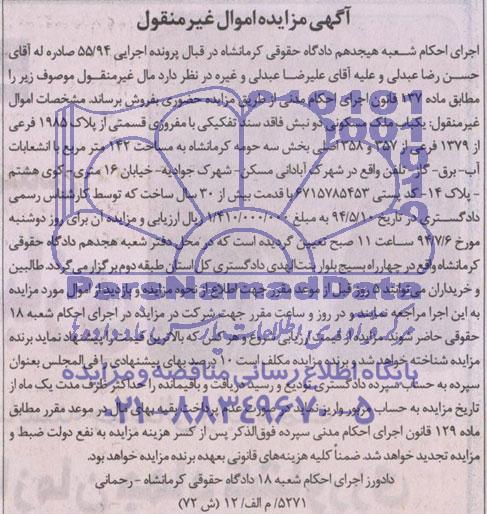 آگهی مزایده اموال غیر منقول
اجرای احکام شعبه هیجدهم دادگاه حقوقی کرمانشاه در قبال پرونده اجرایی ۵۵/۹۴ صادره له آقای
حسن رضا عبدلی و علیه آقای علیرضا عبدلی و غیره در نظر دارد مال غیرمنقول موصوف زیر را
مطابق ماده ۱۳۷ قانون اجرای احکام مدنی از طریق مزایده حضوری بفروش برساند. مشخصات اموال
غیرمنقول: یکباب ملک مسکونی دو نبش فاقد سند تفکیکی با مفروزی قسمتی از پلاک ۱۹۸۵ فرعی
از ۱۳۷۹ فرعی از ۳۵۷ و ۳۵۸ اصلی بخش سه حومه کرمانشاه به مساحت ۱۴۲ متر مربع با انشعابات
آب- برق- گاز- تلفن واقع در شهرک آبادانی مسکن- شهرک جوادیه- خیابان ۱۶ متری- کوی هشتم
- پلاک ۱۴- کد پستی ۶۷۱۵۷۸۵۴۵۳ با قدمت بیش از ۳۰ سال ساخت که توسط کارشناس رسمی
دادگستری در تاریخ ۹۴/۵/۱۰ به مبلغ ۱/۴۱۰/۰۰۰/۰۰۰ ریال ارزیابی و مزایده آن برای روز دوشنبه
مورخ ۹۴/۷/۶ ساعت ۱۱ صبح تعیین گردیده است که در محل دفتر شعبه هجدهم دادگاه حقوقی
کرمانشاه واقع در چهارراه بسیج بلوار بنت الهدی دادگستری کل استان طبقه دوم برگزار می‌گردد. طالبین
و خریداران می‌توانند ۵ روز قبل از موعد مقرر جهت اطلاع از نحوه مزایده و بازدید از اموال مورد مزایده
به این اجرا مراجعه نمایند و در روز و ساعت مقرر جهت شرکت در مزایده در اجرای احکام شعبه ۱۸
حقوقی حاضر شوند مزایده از قیمت ارزیابی شروع و هر کس که بالاترین قیمت را پیشنهاد نماید برنده
مزایده شناخته خواهد شد و برنده مزایده مکلف است ۱۰ درصد بهای پیشنهادی را فی‌المجلس بعنوان
سپرده به حساب سپرده دادگستری تودیع و رسید دریافت و باقیمانده را حداکثر ظرف مدت یک ماه از
تاریخ مزایده به حساب مزبور واریز نماید در صورت عدم پرداخت بقیه بهای مال در موعد مقرر مطابق
ماده ۱۲۹ قانون اجرای احکام مدنی سپرده فوق‌الذکر پس از کسر هزینه مزایده به نفع دولت ضبط و
مزایده تجدید خواهد شد. ضمناً کلیه هزینه‌های قانونی بعهده برنده مزایده خواهد بود.
دادورز اجرای احکام شعبه ۱۸ دادگاه حقوقی کرمانشاه - رحمانی
۵۲۷۱/ م الف/ ۱۲ (ش ۷۲)
ParsNamadData
پایگاه اطلاع رسانی مناقصه و مزایده
۰۲۱-۸۸۳۴۹۶۷۰-۵